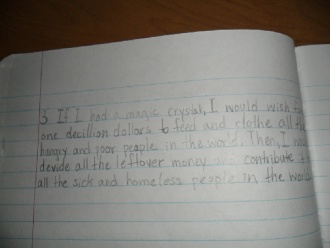 3. If I had a magic crystal, I would wish
one decillian dollars to feed and clothe all
hungry and poor people in the world. Then, I
devide all the leftover money contribute
all the sick and homeless people in the